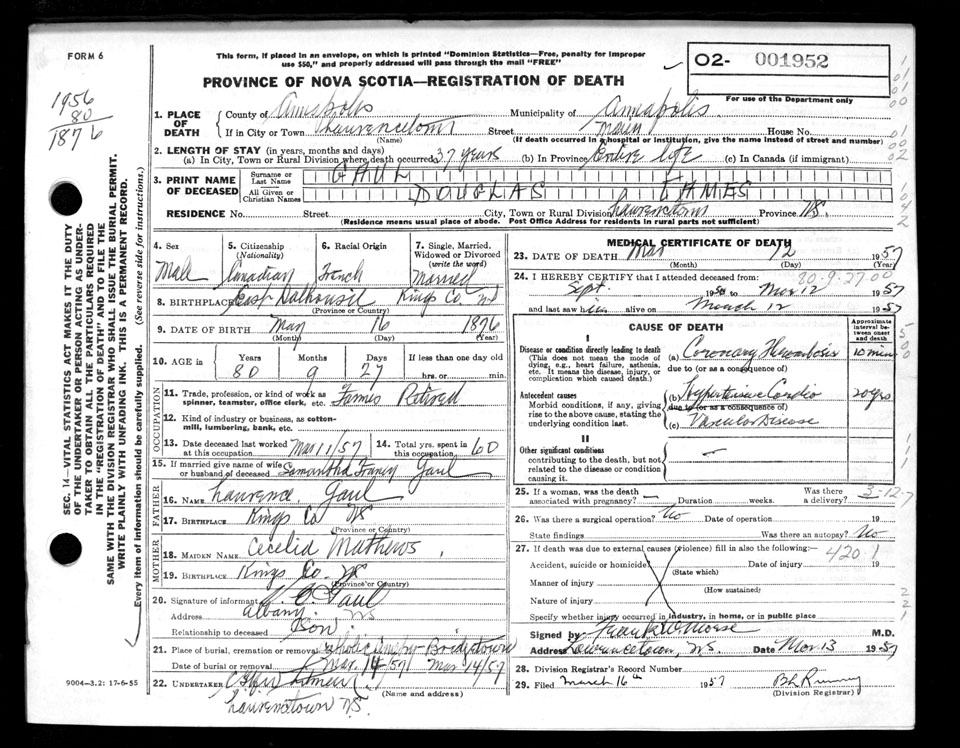 FORM 6
This form, if placed in an envelope, on which is printed "Dominion Statistics—Free, penalty for improper
use $50," and properly addressed will pass through the mail "FREE"
PROVINCE OF NOVA SCOTIA—REGISTRATION OF DEATH
02- 001952
For use of the Department only
1956
80
1876
1. PLACE OF DEATH
County of Annapolis Municipality of Annapolis
If in City or Town Lawrencetown Street Main House No.
(Name) (If death occurred in a hospital or institution, give the name instead of street and number)
2. LENGTH OF STAY (in years, months and days)
(a) In City, Town or Rural Division where death occurred 37 years (b) In Province Entire life (c) In Canada (if immigrant)
3. PRINT NAME OF DECEASED
Surname or Last Name GAUL
All Given or Christian Names DOUGLAS JAMES
RESIDENCE No. Street City, Town or Rural Division Lawrencetown Province NS
(Residence means usual place of abode. Post Office Address for residents in rural parts not sufficient)
4. Sex Male
5. Citizenship (Nationality) Canadian
6. Racial Origin French
7. Single, Married, Widowed or Divorced (write the word) Married
8. BIRTHPLACE East Dalhousie Kings Co. NS
(Province or Country)
9. DATE OF BIRTH May 16 1876
(Month) (Day) (Year)
10. AGE in Years Months Days If less than one day old
80 9 27 hrs. or min.
OCCUPATION
11. Trade, profession, or kind of work as spinner, teamster, office clerk, etc. Farmer Retired
12. Kind of industry or business, as cotton-mill, lumbering, bank, etc.
13. Date deceased last worked at this occupation Mar 11/57
14. Total yrs. spent in this occupation 60
15. If married give name of wife or husband of deceased Samantha Gaul
FATHER
16. NAME Lawrence Gaul
17. BIRTHPLACE Kings Co NS
(Province or Country)
MOTHER
18. MAIDEN NAME Cecelia Mathews
19. BIRTHPLACE Kings Co. NS
(Province or Country)
20. Signature of informant C. Gaul
Address Albany NS
Relationship to deceased Son
21. Place of burial, cremation or removal Catholic Bridgetown
Date of burial or removal Mar. 14/57 Mar 14/57
22. UNDERTAKER
(Name and address)
Lawrencetown NS.
9004-3.2: 17-6-55
SEC. 14—VITAL STATISTICS ACT MAKES IT THE DUTY
OF THE UNDERTAKER OR PERSON ACTING AS UNDER-
TAKER TO OBTAIN ALL THE PARTICULARS REQUIRED
IN THE "REGISTRATION OF DEATH" AND TO FILE THE
SAME WITH THE DIVISION REGISTRAR WHO SHALL ISSUE THE BURIAL PERMIT.
WRITE PLAINLY WITH UNFADING INK. THIS IS A PERMANENT RECORD.
Every item of information should be carefully supplied. (See reverse side for instructions.)
MEDICAL CERTIFICATE OF DEATH
23. DATE OF DEATH Mar 12 1957
(Month) (Day) (Year)
24. I HEREBY CERTIFY that I attended deceased from: 80-9-27 00
Sept. 1956 to Mar 12 1957
and last saw him alive on March 12 1957
CAUSE OF DEATH
Approximate interval between onset and death
I
Disease or condition directly leading to death
(This does not mean the mode of dying, e.g., heart failure, asthenia, etc. It means the disease, injury, or complication which caused death.)
(a) Coronary Thrombosis 10 min
due to (or as a consequence of)
Antecedent causes
Morbid conditions, if any, giving rise to the above cause, stating the underlying condition last.
(b) Hypertensive Cardio 20 yrs
due to (or as a consequence of)
(c) Vascular Disease
II
Other significant conditions
contributing to the death, but not related to the disease or condition causing it.
25. If a woman, was the death associated with pregnancy? — Duration weeks. Was there a delivery? 3-12-7
26. Was there a surgical operation? No Date of operation 19
State findings Was there an autopsy? No
27. If death was due to external causes (violence) fill in also the following:— 420.1
Accident, suicide or homicide? Date of injury 19
(State which)
Manner of injury
(How sustained)
Nature of injury
Specify whether injury occurred in industry, in home, or in public place
Signed by Frank W Morse M.D.
Address Lawrencetown, N.S. Date Mar 13 1957
28. Division Registrar's Record Number
29. Filed March 16th 1957
(Division Registrar)